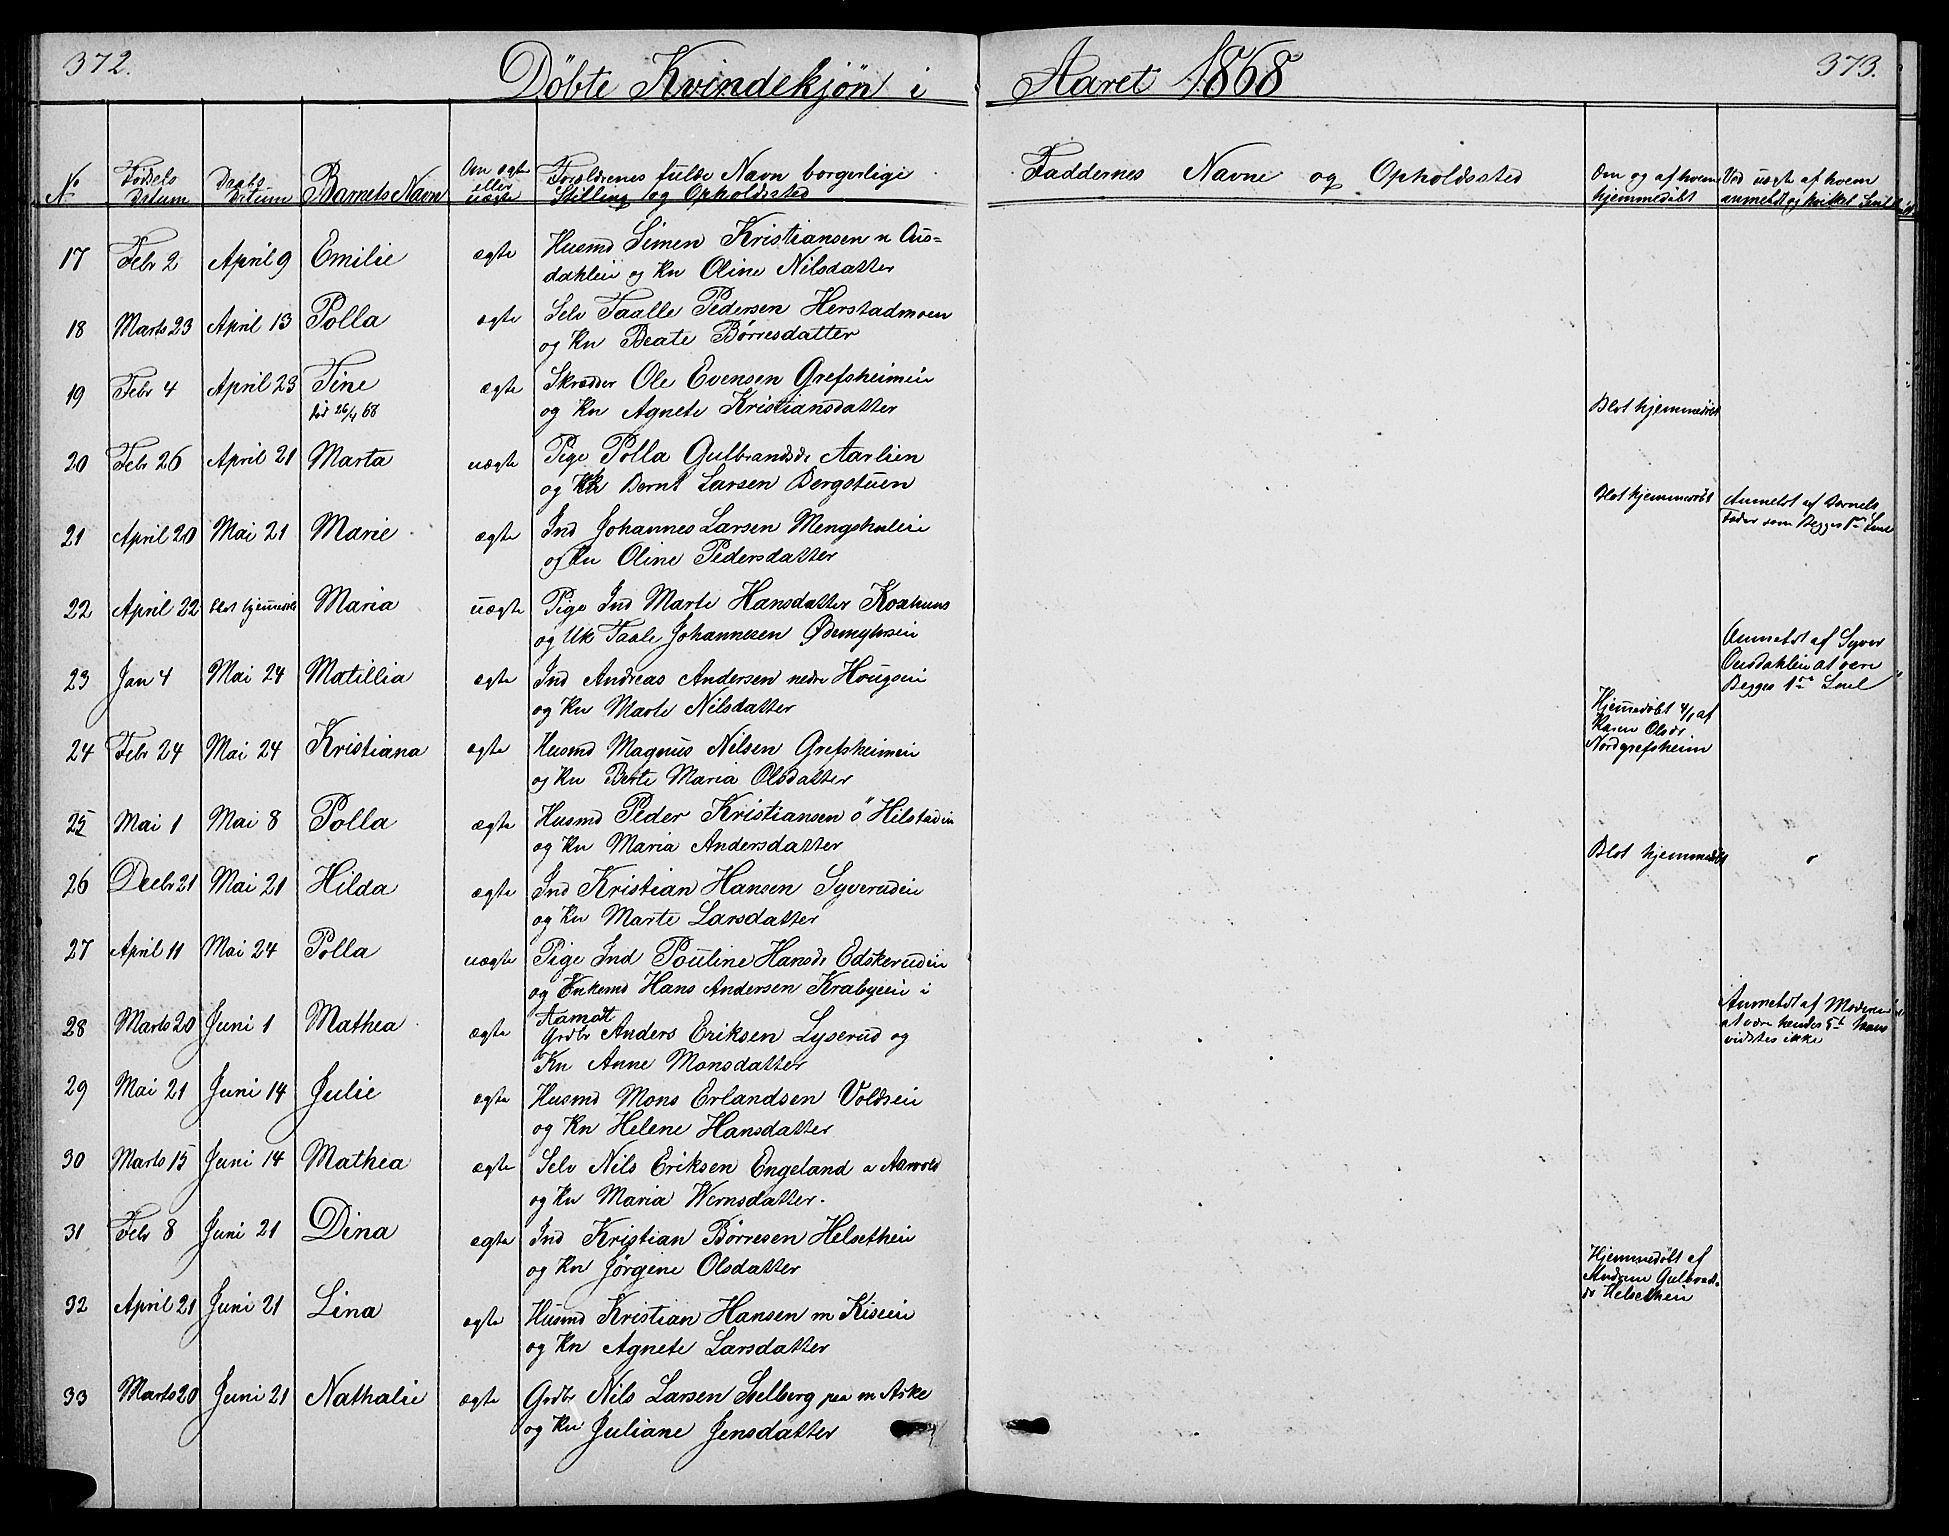 372.
Döbte Kvindekjön i Aaret 1868
373.
No
Födsels Datum
Daabs Datum
Barnets Navn
Om ægte eller uægte
Forældrenes fulde Navn borgerlige Stilling og Opholdssted
Faddernes Navne og Opholdssted
Om og af hvem hjemmedöbt
Ved uægte af hvem anmeldt og hvilket Leiel
17 Febr 2 April 9 Emilie ægte Husmd Simen Kristiansen n Aus=
dahlen og Kn Oline Nilsdatter
18 Marts 23 April 13 Polla ægte Selv Taalle Pedersen Herstadmoen
og Kn Beate Börresdatter
19 Febr 4 April 23 Tine ægte Skræder Ole Evensen Grefsheimein
död 26/4 68 og Kn Agnete Kristiansdatter Blot hjemmedöbt
20 Febr 26 April 21 Marta uægte Pige Polla Gulbrandsdr Aarlien
og Uk Bernt Larsen Bergstuen Blot hjemmedöbt Anmeldt af Barnets
Fader som Begges 1ste Leiel
21 April 20 Mai 21 Marie ægte Ind Johannes Larsen Mengshulein
og Kn Oline Pedersdatter
22 April 22 blot hjemmedöbt Maria uægte Pige Ind Marte Hansdatter
og Uk Taale Johannesen Ödemyhren Anmeldt af Syver
Ousdahlein at være
Begges 1ste Leiel
23 Jan 4 Mai 24 Matillia ægte Ind Andreas Andersen nedre Hougsein
og Kn Marte Nilsdatter Hjemmedöbt 4/1 af
Karen Olsdr
Nordgrefsheim
24 Febr 24 Mai 24 Kristiana ægte Husmd Magnus Nilsen Grefsheimein
og Kn Berte Maria Olsdatter
25 Mai 1 Mai 8 Polla ægte Husmd Peder Kristiansen ö Hilstadein
og Kn Maria Andersdatter Blot hjemmedöbt
26 Decbr 21 Mai 21 Hilda ægte Ind Kristian Hansen Syverudein
og Kn Marte Larsdatter
27 April 11 Mai 24 Polla uægte Pige Ind Pouline Hansdr Edskerudein
og Enkemd Hans Andersen Krabyein i
Aamodt Anmeldt af Moderen
at være hendes 5t hans
vidstes ikke
28 Marts 20 Juni 1 Mathea ægte Grdbr Anders Eriksen Lyserud og
Kn Anne Monsdatter
29 Mai 21 Juni 14 Julie ægte Husmd Mons Erlandsen Voldsein
og Kn Helene Hansdatter
30 Marts 15 Juni 14 Mathea ægte Selv Nils Eriksen Engeland a Aarvold
og Kn Maria Wernsdatter.
31 Febr 8 Juni 21 Dina ægte Ind Kristian Börresen Helsethein
og Kn Jörgine Olsdatter Hjemmedöbt af
Andrine Gulbrands
dr Helsethein
32 April 21 Juni 21 Lina ægte Husmd Kristian Hansen m Kisein
og Kn Agnete Larsdatter
33 Marts 20 Juni 21 Nathalie ægte Grdbr Nils Larsen Selberg paa m Arke
og Kn Juliane Jensdatter